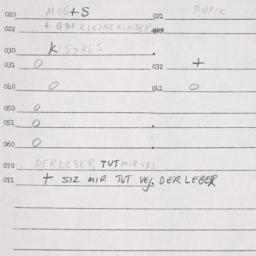 020 MOGtS 021 PUPIK
022 + GAP KLEINE KINDER
030 KISHKES
031 O 032 +
040 O 041 O
050 O
051 O
060 O
070 DER LEBER TUT MIR VEJ
071 + SIZ MIR TUT VEJ. DER LEBER